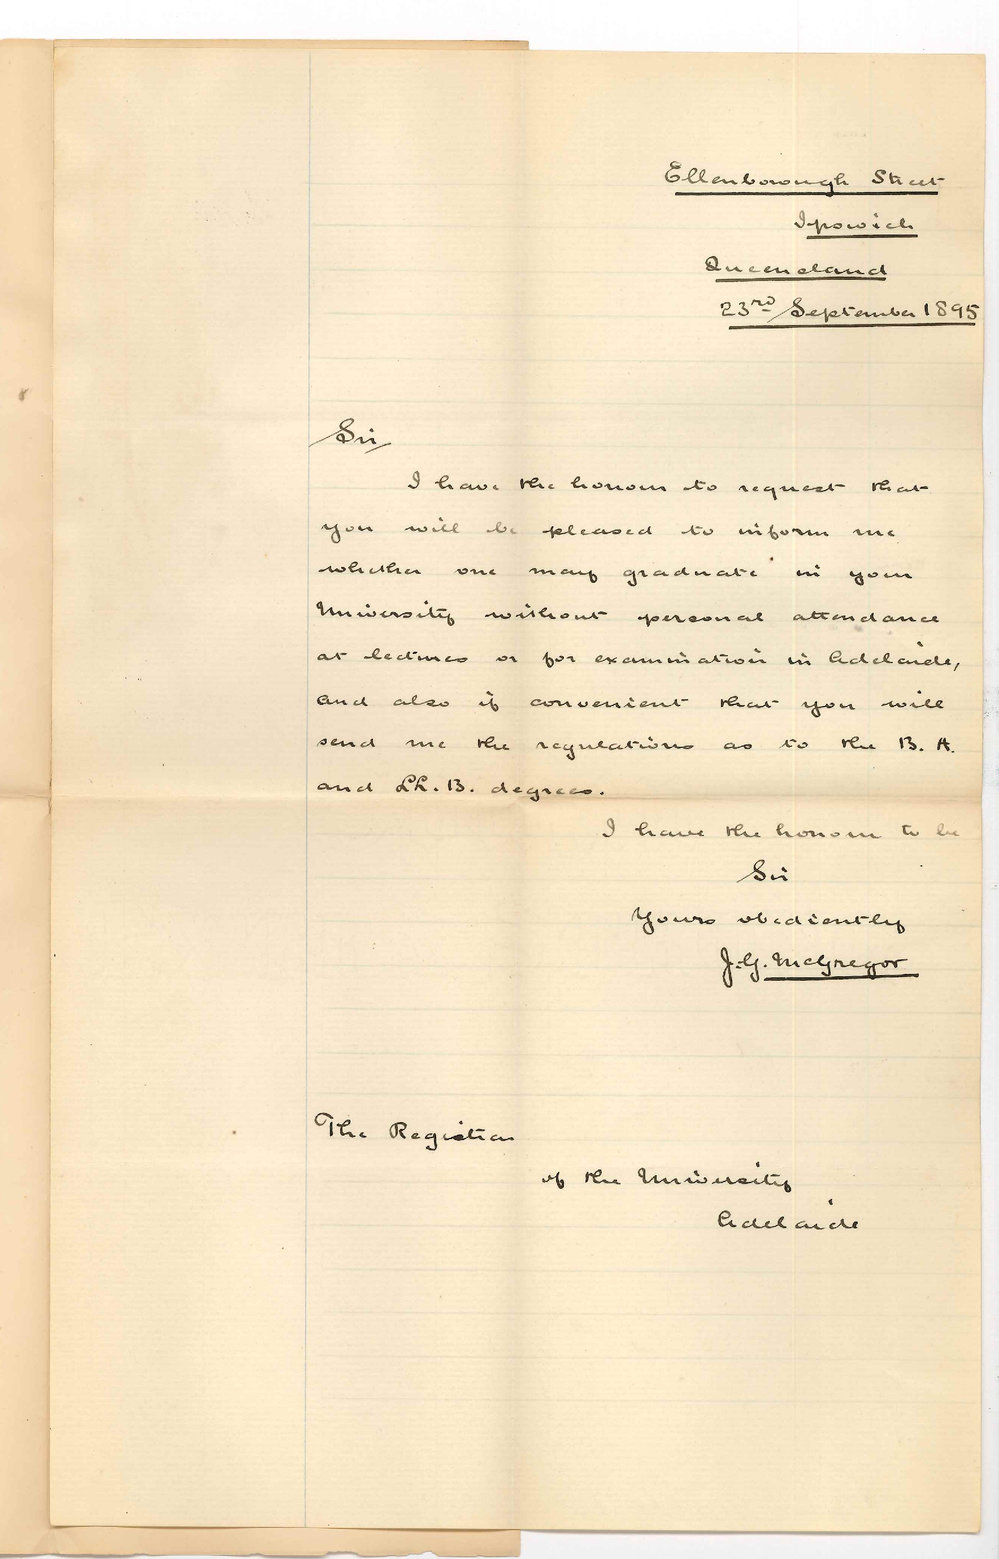 Ellenborough Street
Ipswich
Queensland
23rd September 1895
Sir
I have the honour to request that
you will be pleased to inform me
whether one may graduate in your
University without personal attendance
at lectures or for examination in Adelaide,
and also if convenient that you will
send me the regulations as to the B. A.
and LL. B. degrees.
I have the honour to be
Sir
Yours obediently
J. G. McGregor
The Registrar
of the University
Adelaide